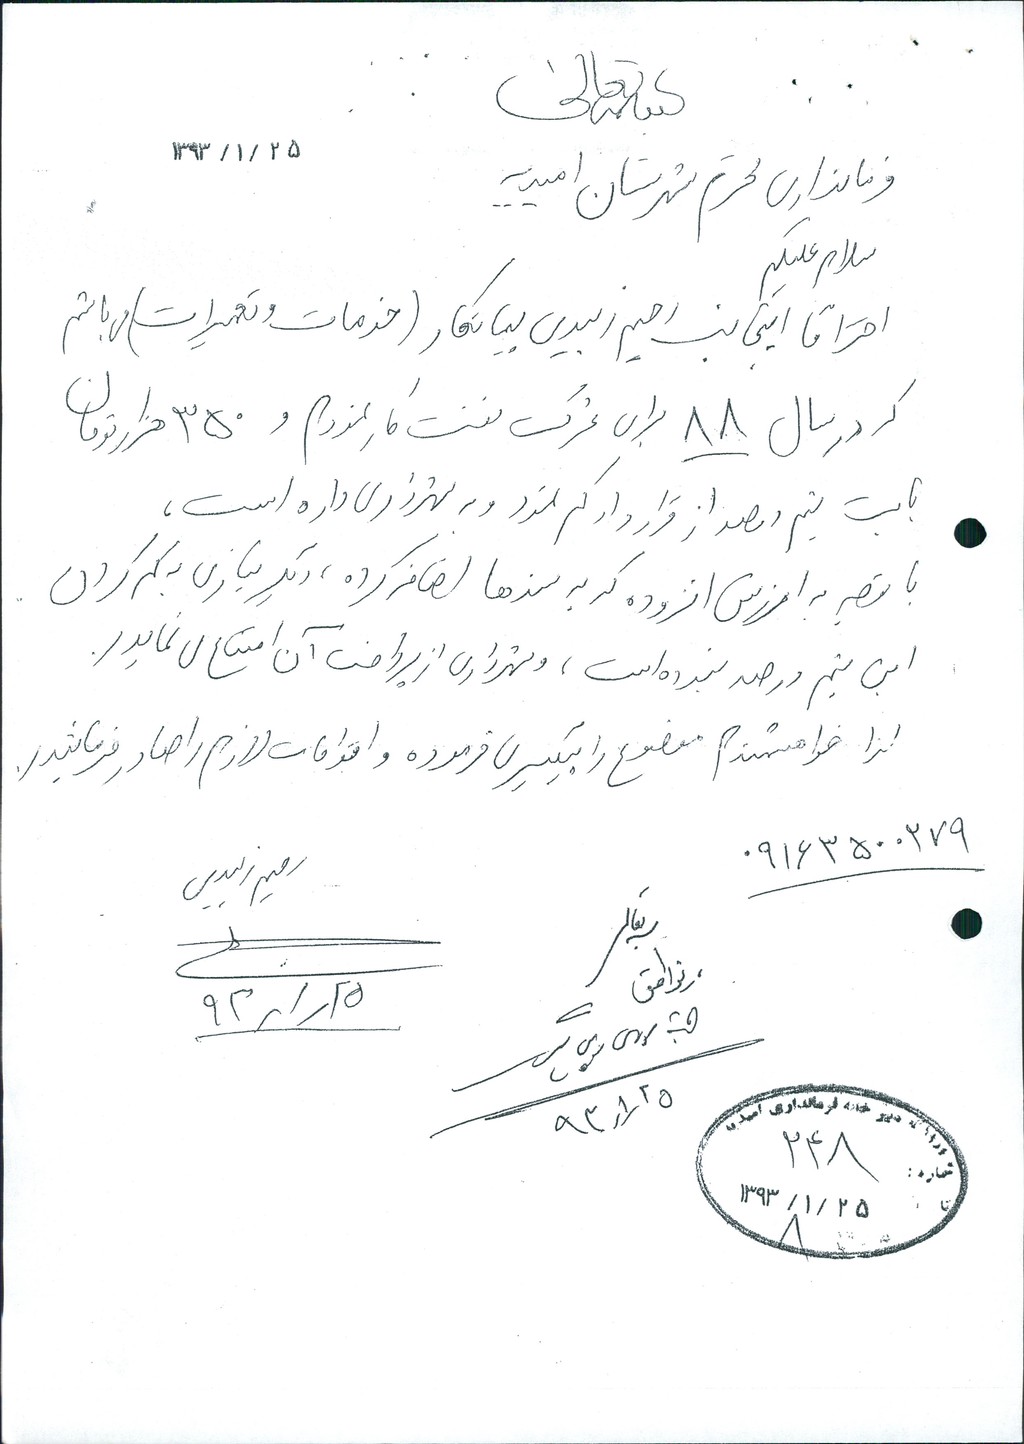 بسمه تعالی
۱۳۹۳/۱/۲۵
فرمانداری محترم شهرستان امیدیه
سلام علیکم
احتراماً اینجانب رحیم زبیدی پیمانکار (خدمات و تعمیرات) می باشم
که در سال ۸۸ برای شرکت نفت کار نمودم و ۳۵۰ هزار تومان
بابت نیم درصد از قرارداد کم نمود و به شهرداری داده است،
با توجه به ارزش افزوده که به سندها اضافه کرده، دیگر نیازی به کم کردن
این نیم درصد نبوده است، و شهرداری از پرداخت آن امتناع می نماید.
لذا خواهشمندم موضوع را پیگیری فرموده و اقدامات لازم را صادر فرمائید.
۰۹۱۶۳۵۰۰۲۷۹
رحیم زبیدی
۹۳/۱/۲۵
بسمه تعالی
۹۳/۱/۲۵
دبیرخانه فرمانداری امیدیه
شماره: ۲۴۸
۱۳۹۳/۱/۲۵